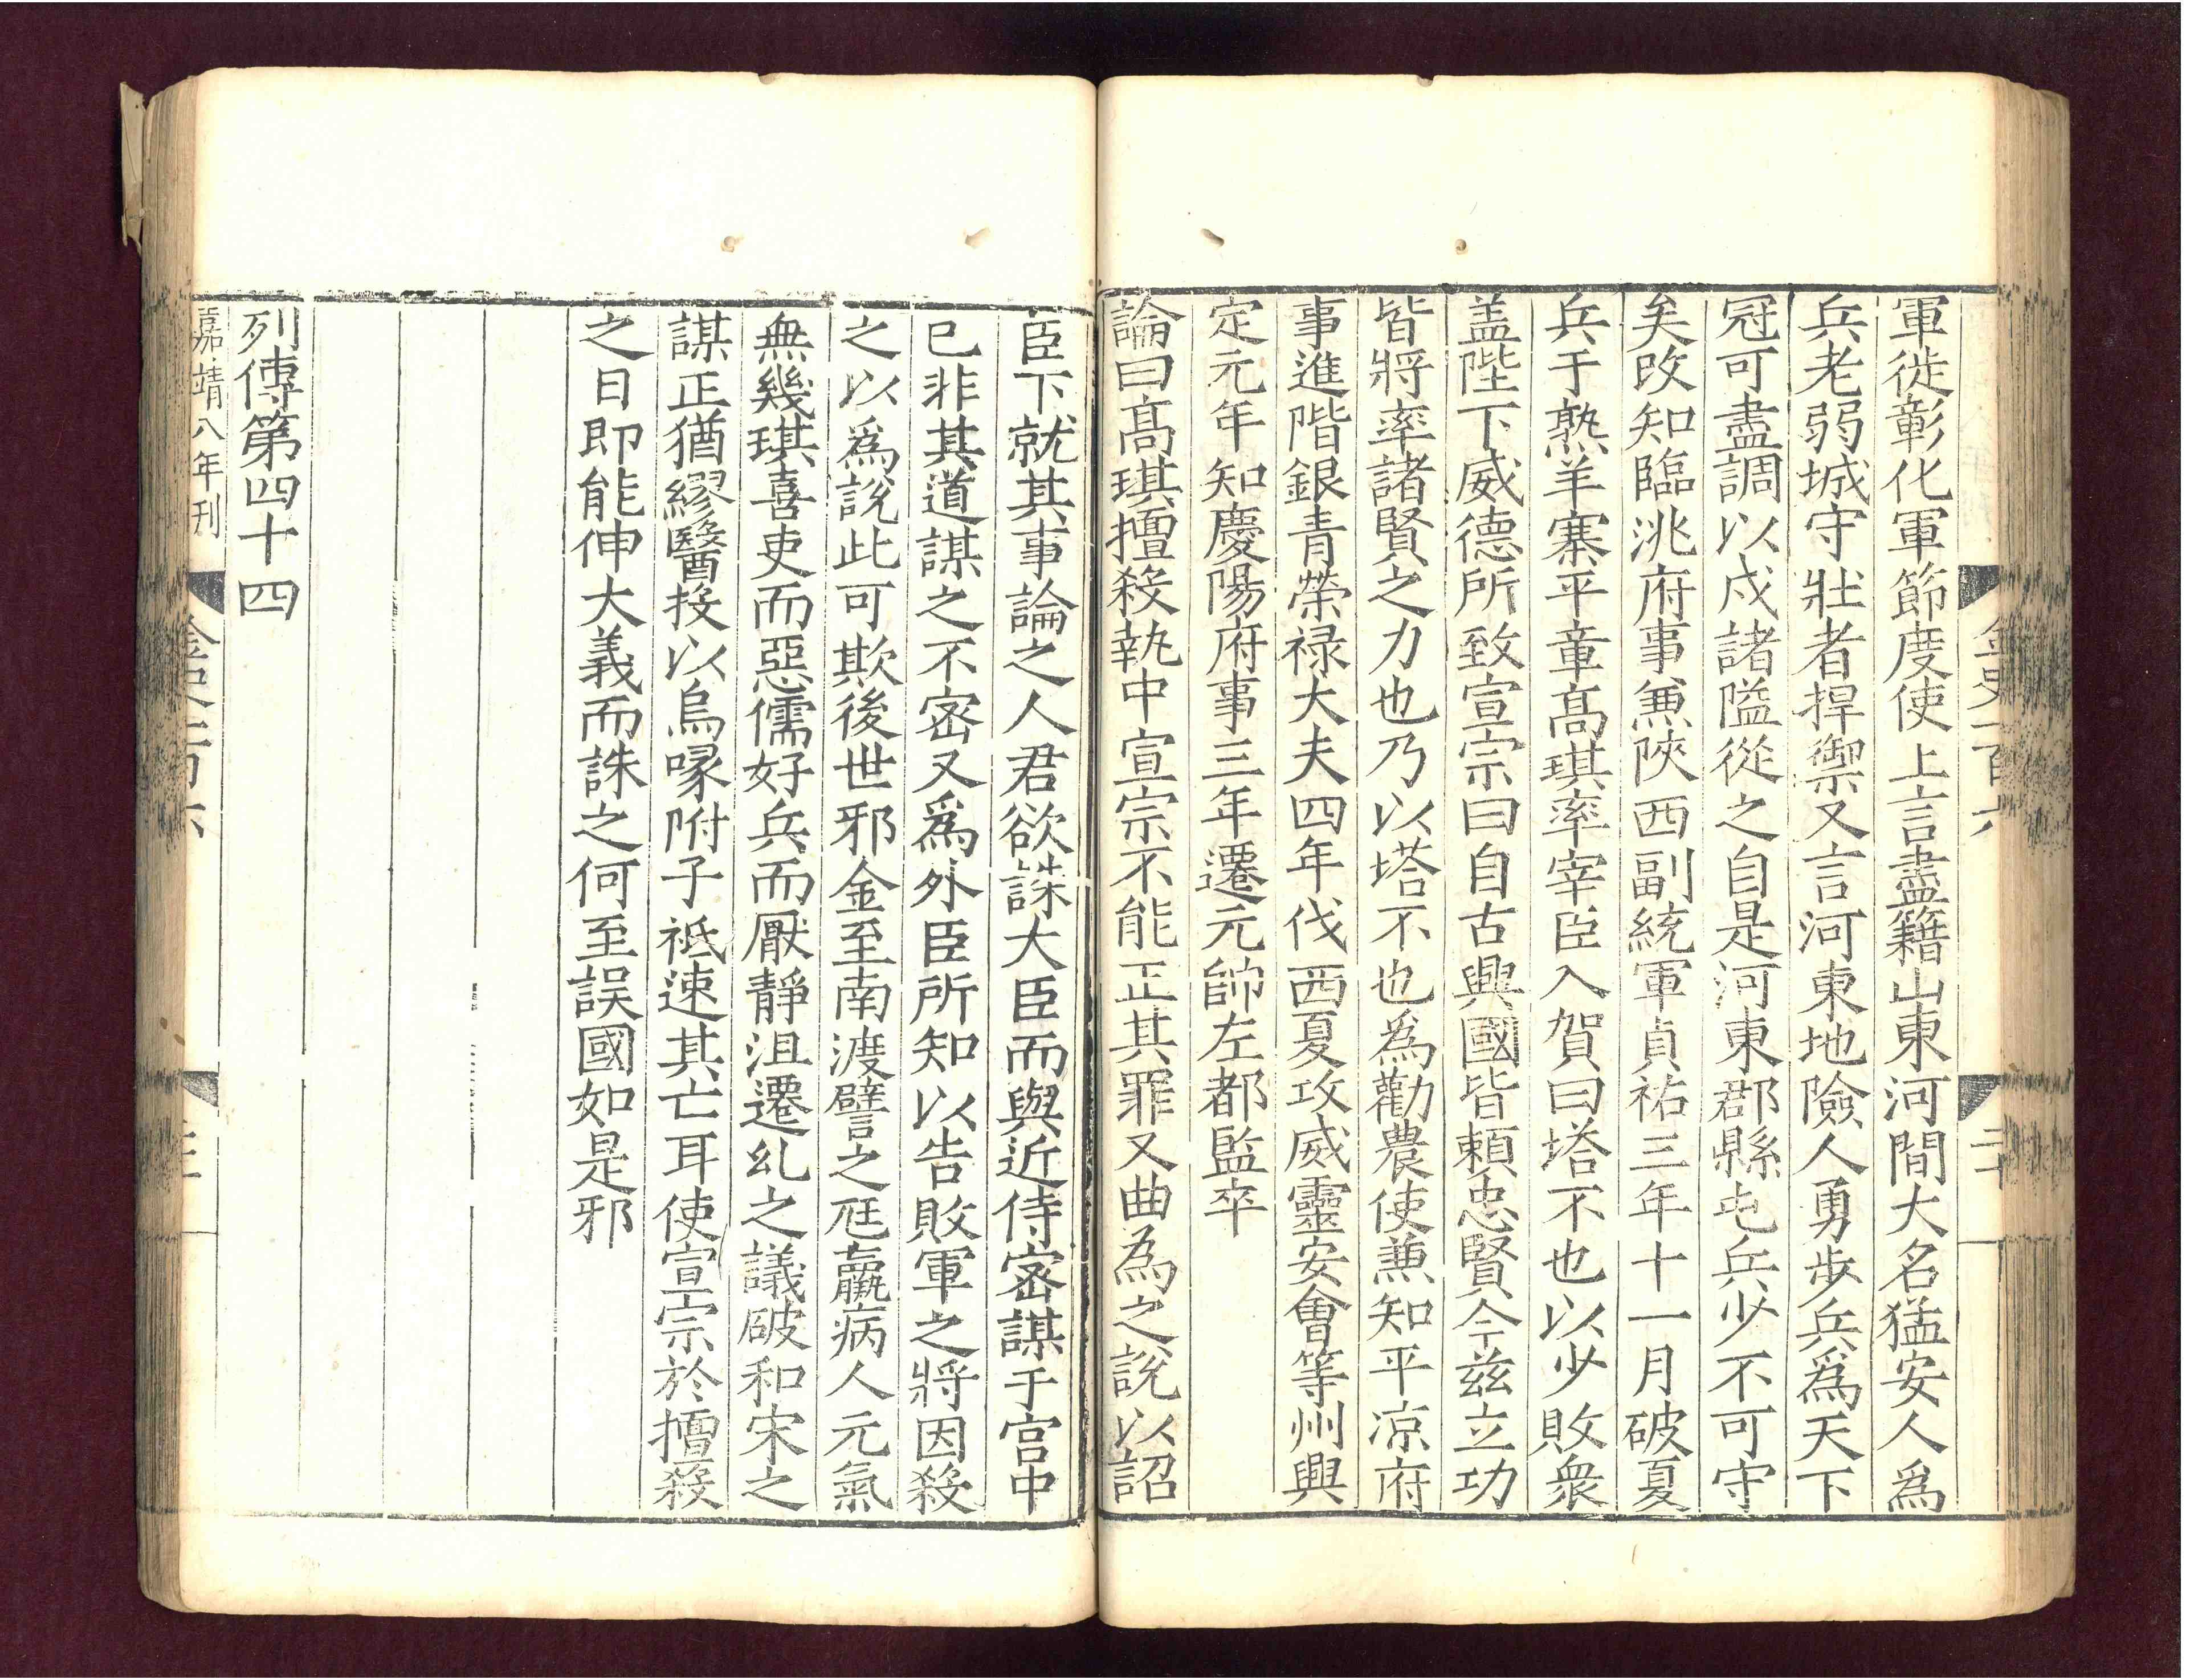 軍徙彰化軍節度使上言盡籍山東河間大名猛安人爲
兵老弱城守壯者捍禦又言河東地險人勇步兵爲天下
冠可盡調以戍諸隘從之自是河東郡縣屯兵少不可守
矣改知臨洮府事兼陝西副統軍貞祐三年十一月破夏
兵于熟羊寨平章髙琪率宰臣入賀曰塔不也以少敗衆
盖陛下威德所致宣宗曰自古興國皆頼忠賢今兹立功
皆將率諸賢之力也乃以塔不也為勸農使兼知平凉府
事進階銀青榮禄大夫四年伐西夏攻威靈安會等州興
定元年知慶陽府事三年遷元帥左都監卒
論曰髙琪擅殺執中宣宗不能正其罪又曲為之說以詔
臣下就其事論之人君欲誅大臣而與近侍宻謀于宫中
已非其道謀之不宻又爲外臣所知以告敗軍之將因殺
之以爲說此可欺後世邪金至南渡譬之尪羸病人元氣
無幾琪喜吏而惡儒好兵而厭靜沮遷𠃵之議破和宋之
謀正猶繆醫投以烏喙附子祗速其亡耳使宣宗於擅殺
之日即能伸大義而誅之何至誤國如是邪
列傳第四十四
嘉靖八年刊
金史一百六
二十